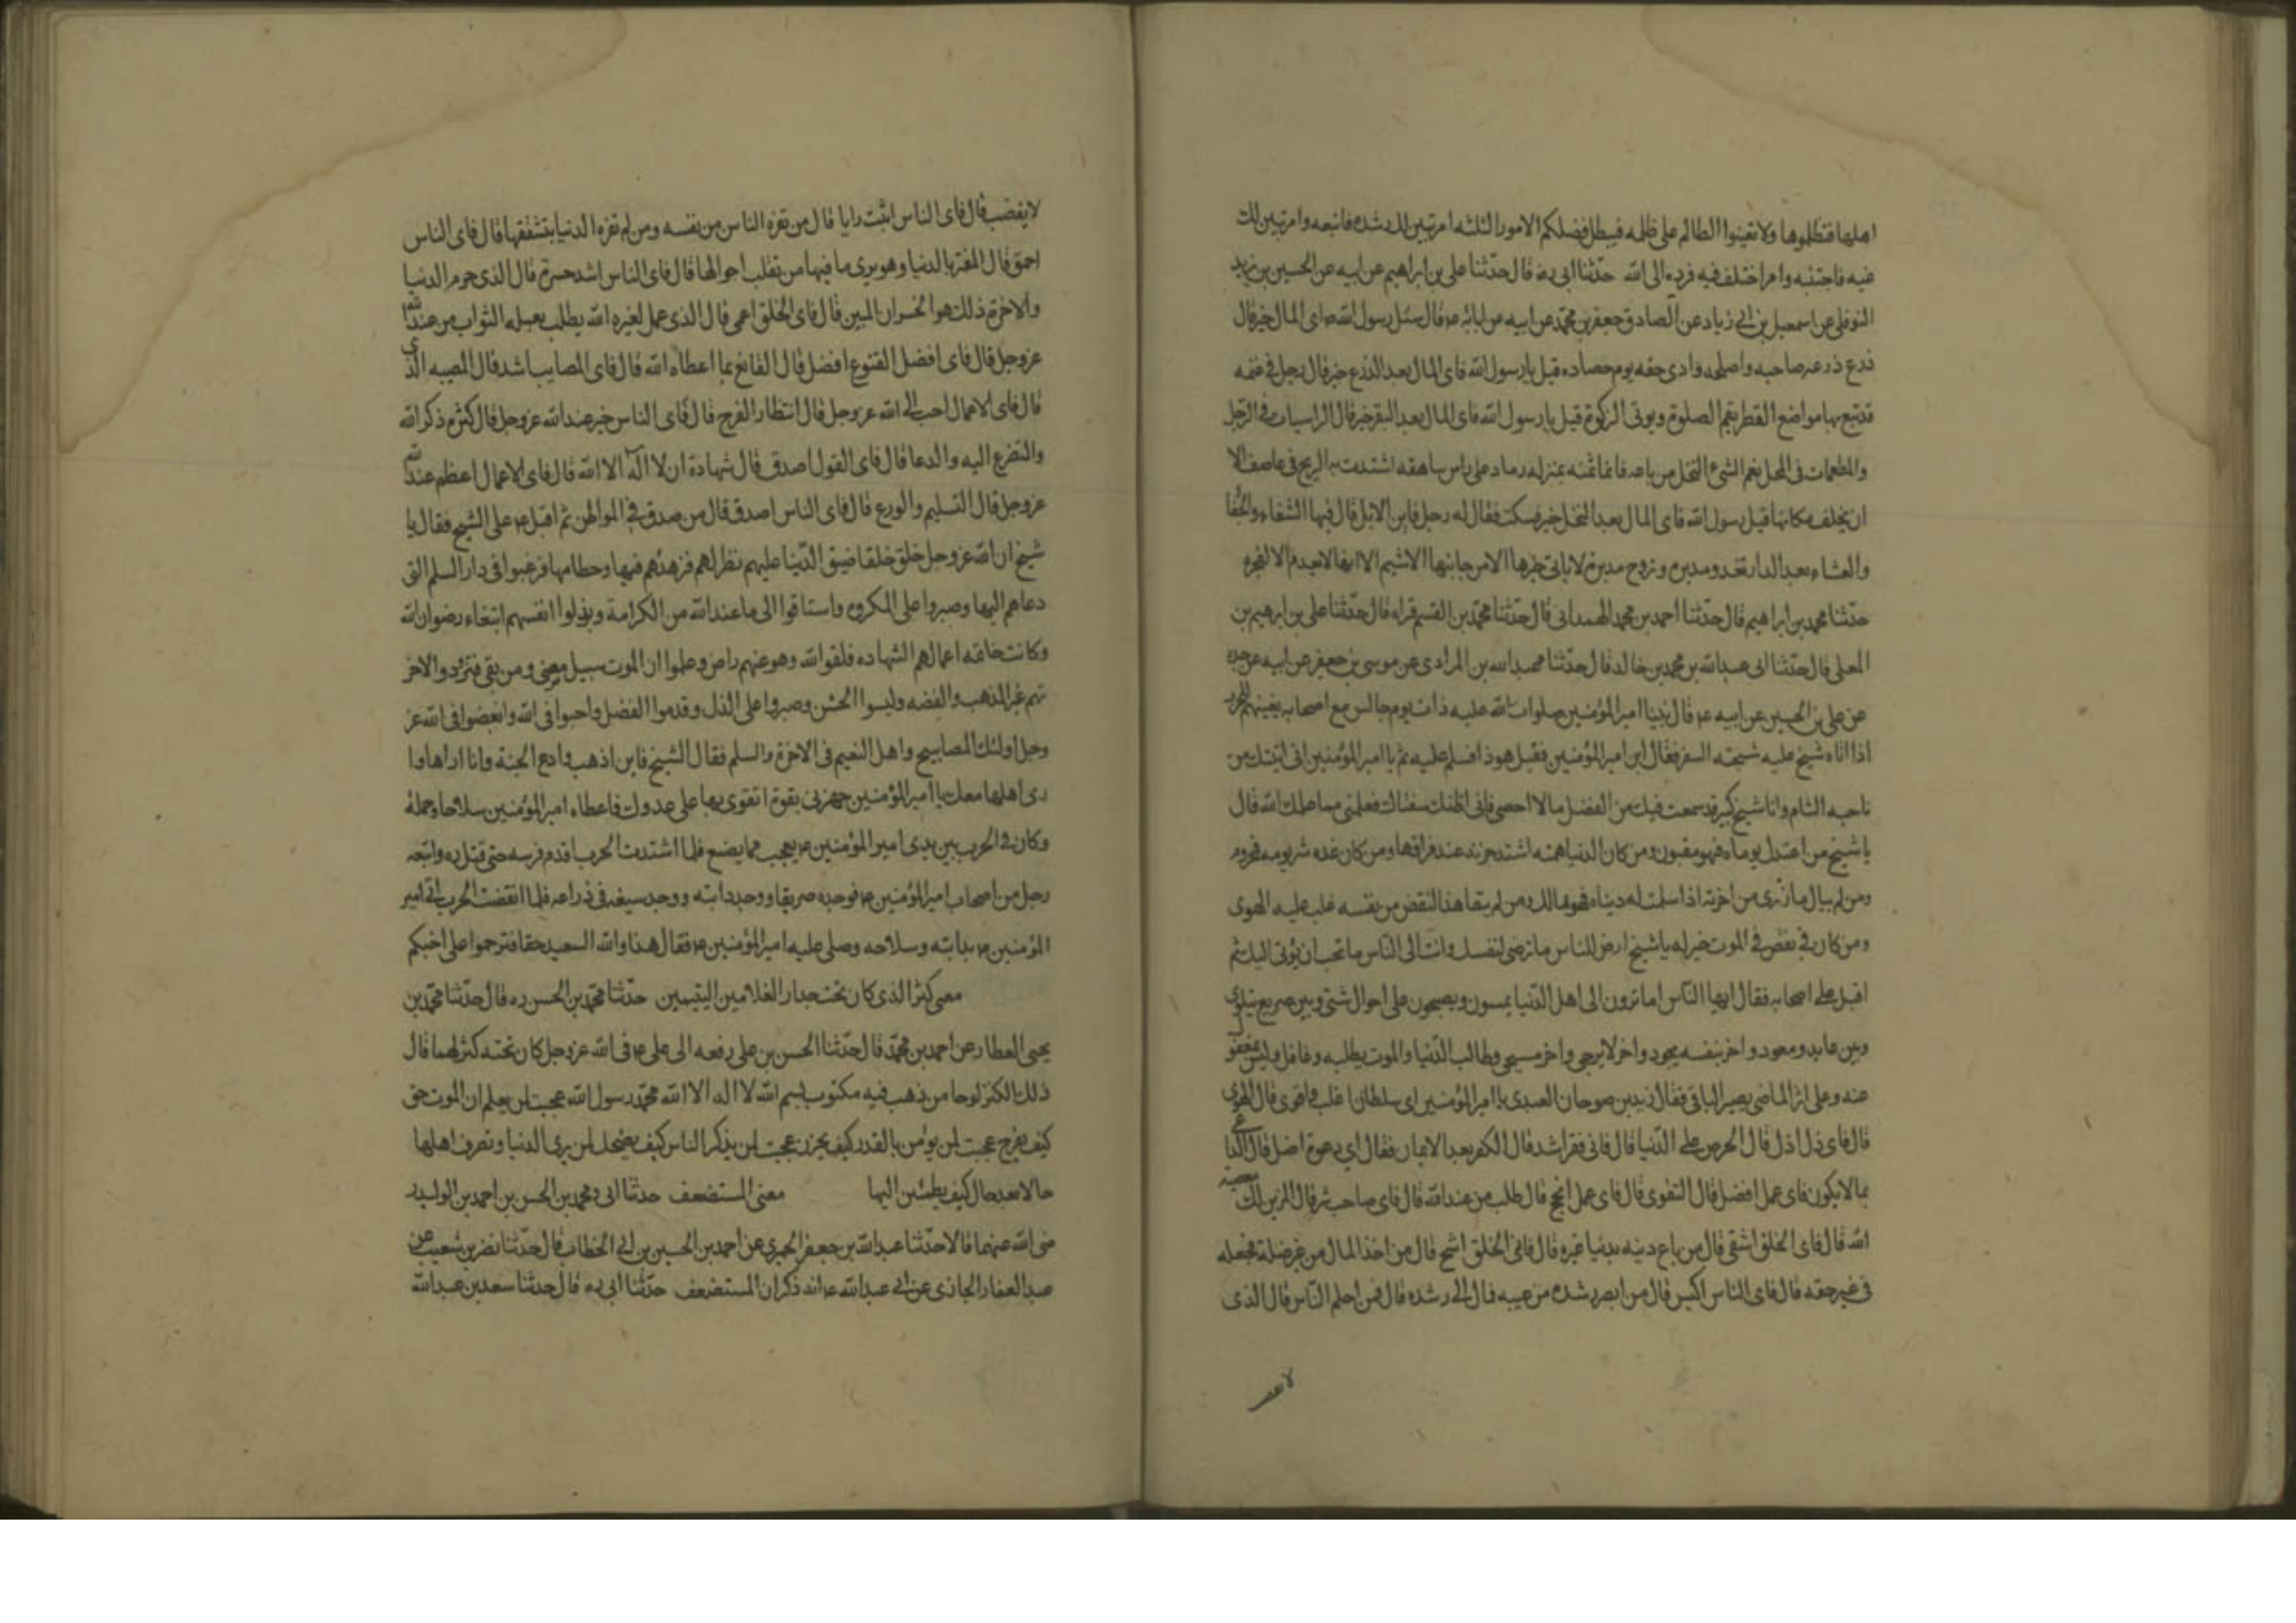 اهلها فتظلموها ولا تعينوا الظالم على ظلمه فيبطل فضلكم الامور الثلثه امر تبين لك رشده فاتبعه وامر تبين لك
غيه فاجتنبه وامر اختلف فيه فرده الى الله حدثنا ابى ره قال حدثنا على بن ابراهيم عن ابيه عن الحسين بن يزيد
النوفلى عن اسمعيل بن ابى زياد عن الصادق جعفر بن محمد عن ابيه عن ابائه ع قال سئل رسول الله ص اى المال خير قال
زرع زرعه صاحبه واصلحه وادى حقه يوم حصاده قيل يا رسول الله فاى المال بعد الزرع خير قال رجل فى غنمه
قد تبع بها مواضع القطر يقيم الصلوة ويوتى الزكوة قيل يا رسول الله فاى المال بعد البقر خير قال الراسيات فى الوحل
والمطعمات فى المحل نعم الشىء النخل من باعه فانما ثمنه بمنزله رماد على راس شاهقه اشتدت به الريح فى عاصف الا
ان يخلف مكانها قيل رسول الله فاى المال بعد النخل خير فسكت فقال له رجل فاين الابل قال فيها الشقاء والجفا
والعناء وبعد الدار تغدو مدبره وتروح مدبرة لا ياتى خيرها الا من جانبها الاشيم الا انها لا تعدم الا الفجره
حدثنا محمد بن ابراهيم قال حدثنا احمد بن محمد الهمدانى قال حدثنا محمد بن القسم قراه قال حدثنا على بن ابرهيم بن
المعلى قال حدثنا ابى عبدالله بن محمد بن خالد قال حدثنا عبدالله بن المرادى عن موسى بن جعفر عن ابيه عن جده
عن على بن الحسين عن ابيه ع قال بينا امير المؤمنين صلوات الله عليه ذات يوم جالس مع اصحابه يعبيهم للحرب
اذا اتاه شيخ عليه شحبة السفر فقال اين امير المؤمنين فقيل هو ذا فسلم عليه ثم يا امير المؤمنين انى اتيتك من
ناحيه الشام وانا شيخ كبير قد سمعت فيك من الفضل ما لا احصى فانى اظنك ستغتال فعلمنى مما علمك الله قال
يا شيخ من اعتدل يوماه فهو مغبون ومن كان الدنيا همته اشتد حزنه عند فراقها ومن كان غده شر يومه محروم
ومن لم يبال ما زرى من اخرته اذا سلمت له دنياه فهو هالك ومن لم يتعاهد النقص من نفسه غلب عليه الهوى
ومن كان فى نقص فالموت خير له يا شيخ ارض للناس ما ترضى لنفسك وات الى الناس ما تحب ان يؤتى اليك ثم
اقبل على اصحابه فقال ايها الناس اما ترون الى اهل الدنيا يمسون ويصبحون على احوال شتى وبين صريع يتلوى
وبين عايد ومعود واخر بنفسه يجود واخر لا يرجى واخر مسجى وطالب الدنيا والموت يطلبه وغافل وليس بمغفول
عنه وعلى اثر الماضى يصير الباقى فقال زيد بن صوحان العبدى يا امير المؤمنين اى سلطان اغلب واقوى قال الهوى
قال فاى ذل اذل قال الحرص على الدنيا قال فاى فقر اشد قال الكفر بعد الايمان فقال اى دعوة اضل قال الداعى
بما لا يكون فاى عمل افضل قال التقوى قال فاى عمل انجح قال طلب من عند الله قال فاى صاحب شر قال المزين لك معصيه
الله قال فاى الخلق اشقى قال من باع دينه بدنيا غيره قال فاى الخلق اشح قال من اخذ المال من غير حله فجعله
فى غير حقه قال فاى الناس اكيس قال من ابصر رشده من غيه فمال الى رشده قال فمن احلم الناس قال الذى
لا يغضب
لا يغضب قال فاى الناس اثبت رايا قال من لم تغره الناس من نفسه ومن لم تغره الدنيا بتشفقها قال فاى الناس
احمق قال المغتر بالدنيا وهو يرى ما فيها من تقلب احوالها قال فاى الناس اشد حسرة قال الذى حرم الدنيا
والاخرة ذلك هو الخسران المبين قال فاى الخلق اعمى قال الذى عمل لغيره الله يطلب بعمله الثواب من عند الله
عزوجل قال فاى افضل القنوع افضل قال القانع بما اعطاه الله قال فاى المصايب اشد قال المصيبه الذى
قال فاى الاعمال احب الى الله عزوجل قال انتظار الفرج قال فاى الناس خير عند الله عزوجل قال كثرة ذكر الله
والتضرع اليه والدعا قال فاى القول اصدق قال شهادة ان لا اله الا الله قال فاى الاعمال اعظم عند الله
عزوجل قال التسليم والورع قال فاى الناس اصدق قال من صدق فى المواطن ثم اقبل ع على الشيخ فقال يا
شيخ ان الله عزوجل خلق خلقا ضيق الدنيا عليهم نظرا لهم فزهدهم فيها وحطامها فرغبوا فى دار السلم التى
دعاهم اليها وصبروا على المكروه واستاقوا الى ما عند الله من الكرامة وبذلوا انفسهم ابتغاء رضوان الله
وكانت خاتمه اعمالهم الشهاده فلقوا الله وهو عنهم راض وعلموا ان الموت سبيل من مضى ومن بقى فتزودوا لاخر
تهم غير الذهب والفضه ولبسوا الخشن وصبروا على الذل وقدموا الفضل واحبوا فى الله وابغضوا فى الله عز
وجل اولئك المصابيح واهل النعيم فى الاخرة والسلم فقال الشيخ فاين اذهب وادع الجنة وانا اراها وا
رى اهلها معك يا امير المؤمنين جهزنى بقوة اتقوى بها على عدوك فاعطاه امير المؤمنين سلاحا وحمله
وكان فى الحرب بين يدى امير المؤمنين ع يعجب مما يصنع فلما اشتدت الحرب اقدم فرسه حتى قتل ره واتبعه
رجل من اصحاب امير المؤمنين ع فوجده صريعا ووجد دابته ووجد سيفه فى ذراعه فلما انقضت الحرب اتى امير
المؤمنين ع بدابته وسلاحه وصلى عليه امير المؤمنين ع فقال هذا والله السعيد حقا فترحموا على اخيكم
معنى كنز الذى كان تحت جدار الغلامين اليتيمين حدثنا محمد بن الحسن ره قال حدثنا محمد بن
يحيى العطار عن احمد بن محمد قال حدثنا الحسن بن على رفعه الى على ع فى الله عزوجل كان تحته كنز لهما قال
ذلك الكنز لوحا من ذهب فيه مكتوب بسم الله لا اله الا الله محمد رسول الله عجبت لمن يعلم ان الموت حق
كيف يفرح عجبت لمن يومن بالقدر كيف يحزن عجبت لمن يذكر الناس كيف يضحك لمن يرى الدنيا وتصرف اهلها
حالا بعد حال كيف يطمئن اليها معنى المستضعف حدثنا ابى ومحمد بن الحسن بن احمد بن الوليد ر
ضى الله عنهما قالا حدثنا عبدالله بن جعفر الحميرى عن احمد بن الحسين بن ابى الخطاب قال حدثنا نضر بن شعيب عن
عبد الغفار الجازى عن ابى عبدالله ع انه ذكر ان المستضعف حدثنا ابى ره قال حدثنا سعد بن عبدالله